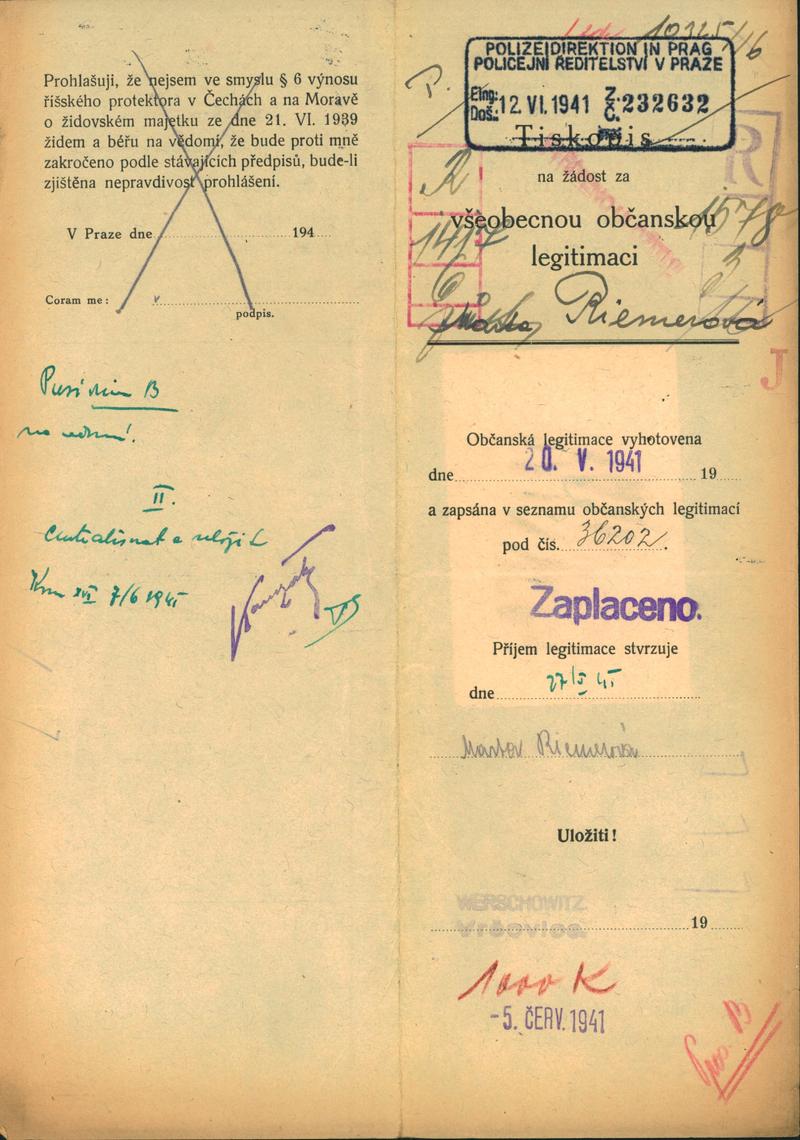 Prohlašuji, že nejsem ve smyslu § 6 výnosu
říšského protektora v Čechách a na Moravě
o židovském majetku ze dne 21. VI. 1939
židem a béřu na vědomí, že bude proti mně
zakročeno podle stávajících předpisů, bude-li
zjištěna nepravdivost prohlášení.
V Praze dne 194
Coram me:
podpis.
B
II.
7/6 1941
10325/16
POLIZEIDIREKTION IN PRAG
POLICEJNÍ ŘEDITELSTVÍ V PRAZE
Eing.: Doš.: 12. VI. 1941 Z. Č. 232632
Tiskopis
na žádost za
R
R
všeobecnou občanskou
1417
1578
legitimaci
6
3
Marta Riemerová
J
Občanská legitimace vyhotovena
dne 20. V. 1941 19
a zapsána v seznamu občanských legitimací
pod čís. 36202.
Zaplaceno.
Příjem legitimace stvrzuje
dne 27/5 41
Marta Riemerová
Uložiti!
WERSCHOWITZ
Vršovice 19
1000 K
-5. ČERV. 1941
B